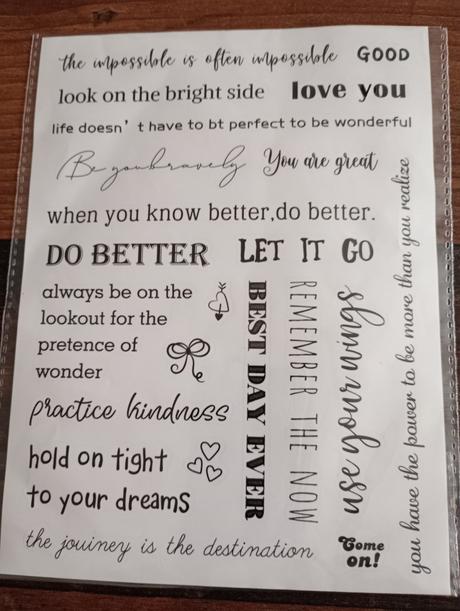 the impossible is often impossible
GOOD
look on the bright side
love you
life doesn't have to bt perfect to be wonderful
Be you bravely
You are great
when you know better,do better.
DO BETTER
LET IT GO
always be on the
lookout for the
pretence of
wonder
BEST DAY EVER
REMEMBER THE NOW
use your wings
you have the power to be more than you realize
practice kindness
hold on tight
to your dreams
the jouiney is the destination
Come
on!